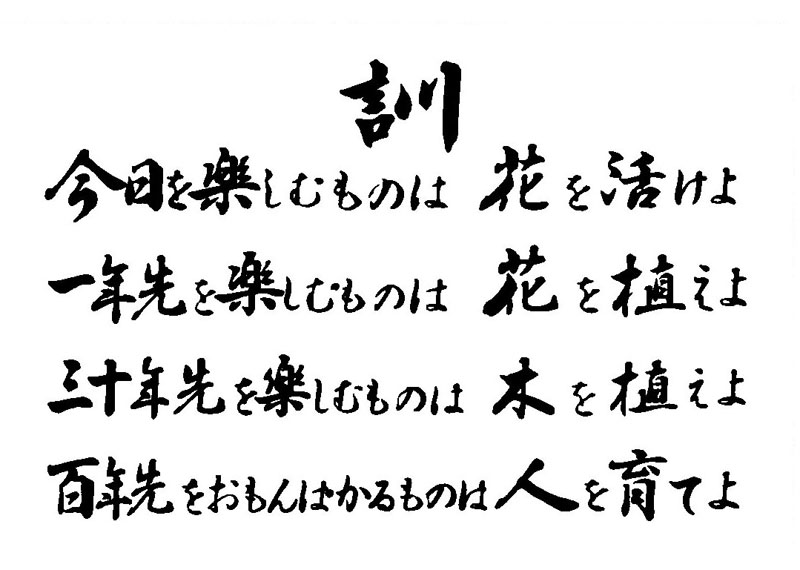 訓
今日を楽しむものは 花を活けよ
一年先を楽しむものは 花を植えよ
三十年先を楽しむものは 木を植えよ
百年先をおもんばかるものは 人を育てよ